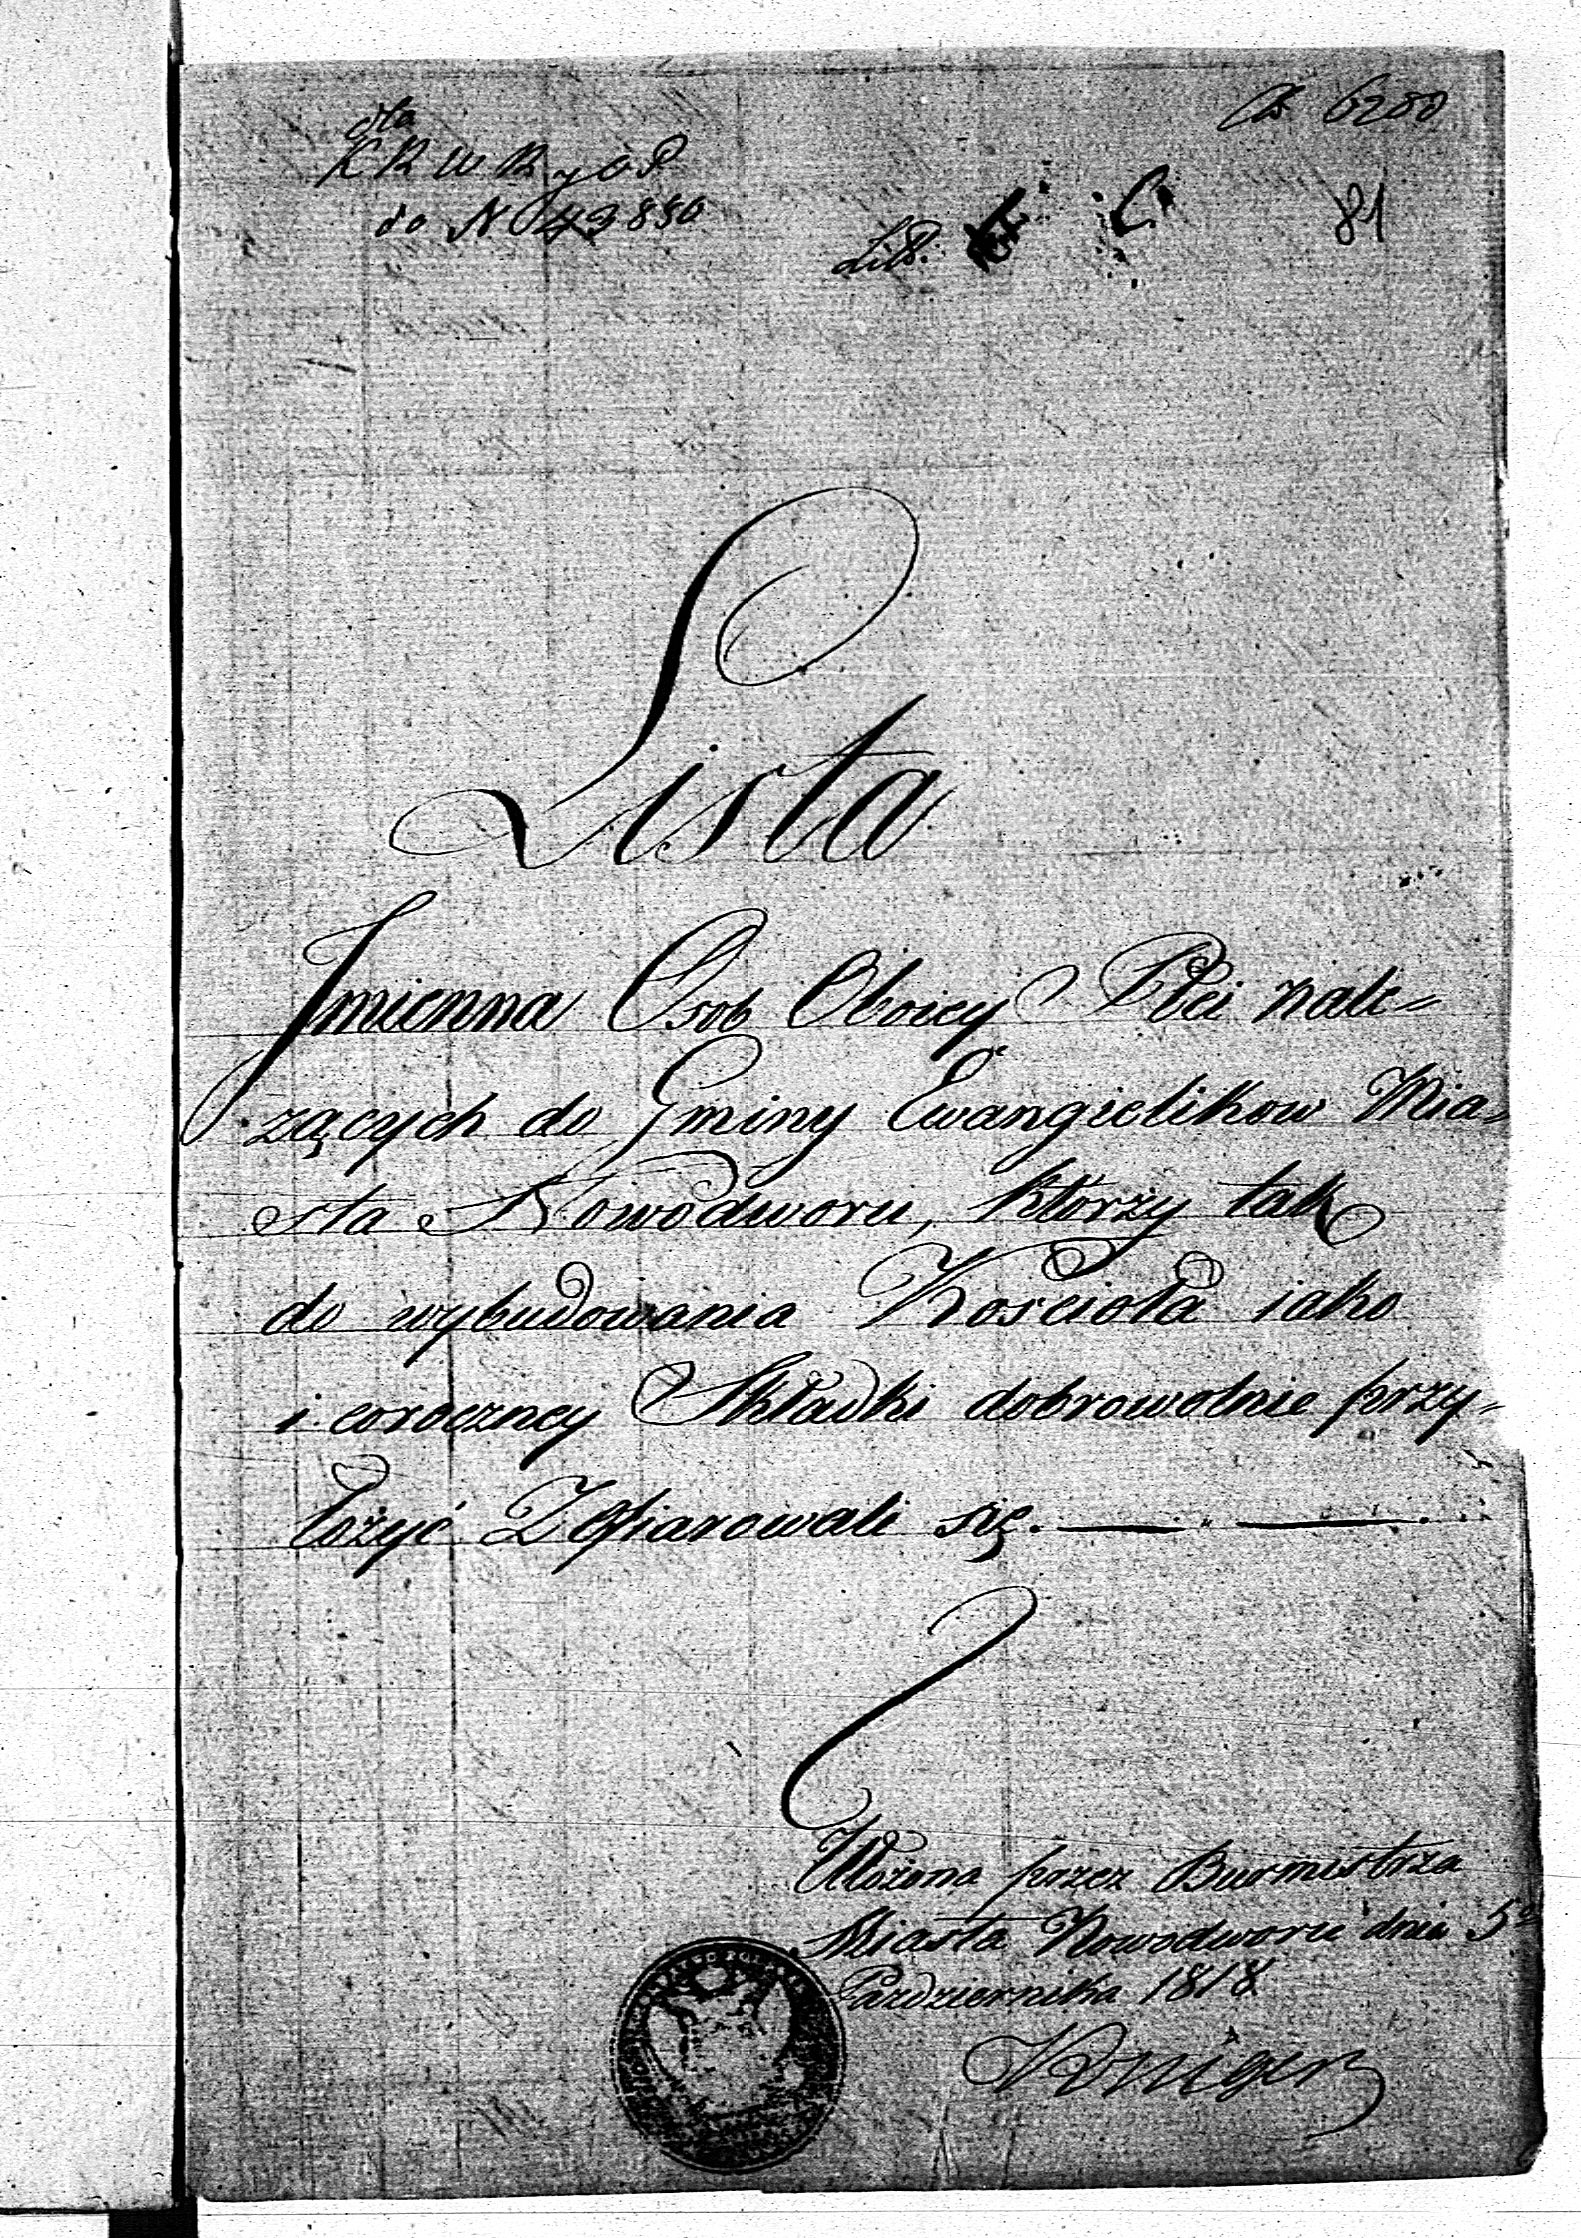 dla
K R W R y O P
do N 43830
6280
Litt. C.
81
Lista
Jmienna Osob Oboiey Płci nale=
żących do Gminy Ewangielikow Mia=
sta Nowodworu, ktorzy tak
do wybudowania Kościoła iako
i coroczney Składki dobrowolnie przy=
łożyć Zofiarowali się.
Ułożona przez Burmistrza
Miasta Nowodworu dnia 5º
Pazdziernika 1818
Königer